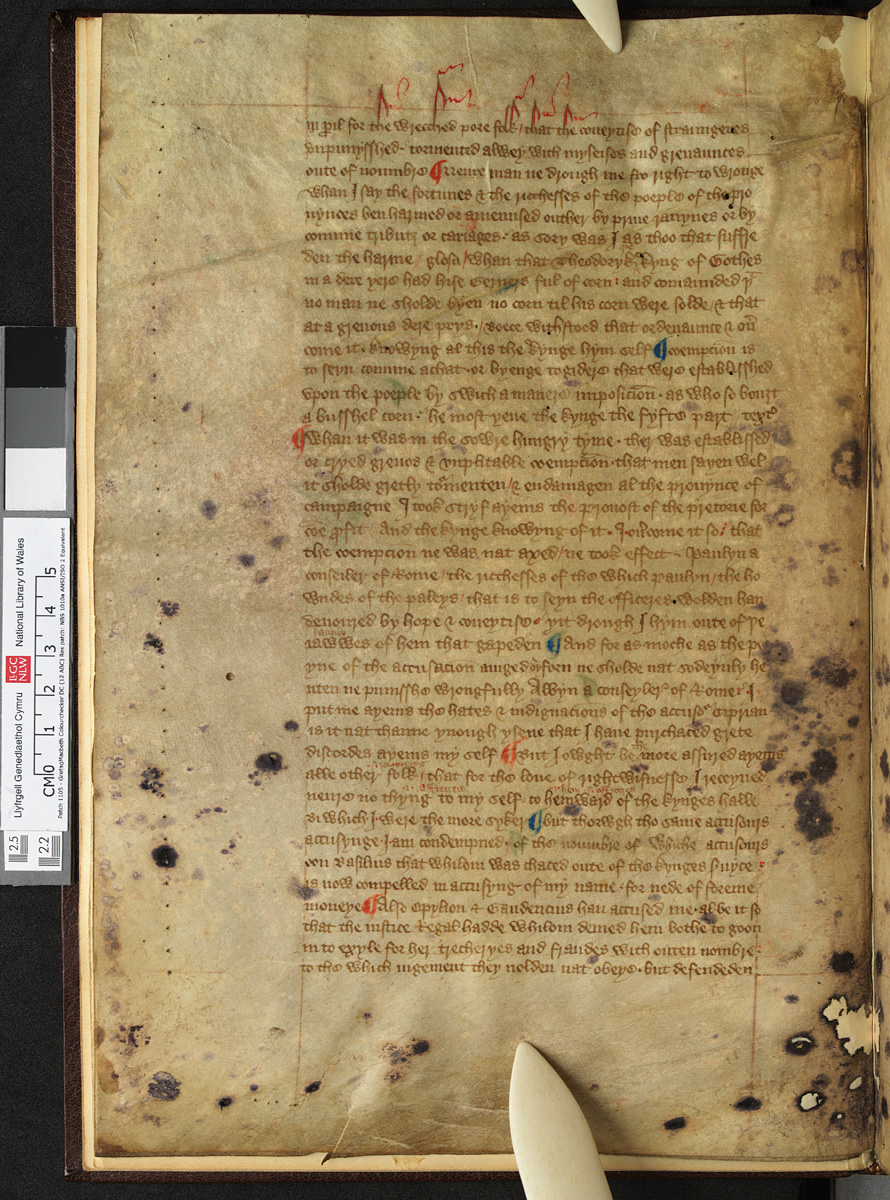 in peril for the wrecched pore folk / that the coueytise of straungeres
vnpunysshed . tormented alwey with myseises and greuaunces
oute of noumbre ¶ Neuere man ne drough me fro right to wronge
whan I say the fortunes & the richesses of the poeple of the pro
uynces ben harmed or amenused outher by priue rauynes or by
comune tributz or cariages . as sory was I as thoo that suffre
den the harme / glosa / whan that Theodoryk kyng of Gothes
in a dere yere had hise Gerners ful of corn . and comaunded þt
no man ne sholde byen no corn til his corn were solde / & that
at a greuous dere prys . / Boece withstood that ordenaunce & ouer
come it . knowyng al this the kynge hym self ¶ coempcion is
to seyn comune achat . or byenge togidere that were establisshed
vpon the poeple by swich a manere imposicion . as who so bouzt
a busshel corn . he most yeue the kynge the fyfte part / textus
¶ whan it was in the sowre hungry tyme . ther was establissed
or cryed greuos & vnplitable coempcion . that men sayen wel
it sholde gretly tormenten / & endamagen al the prouynce of
campaigne I took stryf ayeins the prouost of the pretorie for
comune profit And the kynge knowyng of it . I ouercome it so . that
the coempcion ne was nat axed / ne took effect . Paulyn a
conseiler of Rome / the richesses of the which paulyn / the ho
wndes of the paleys / that is to seyn the officeres wolden han
deuoured by hope & coueytise . yit drough I hym oute of þe
iawwes of hem that gapeden ¶ And for as moche as the pe
yne of the accusacion aiuged byforn ne sholde nat sodeynly he
nten ne punisshe wrongfully Albyn a conseyler of Rome . I
put me ayeins the hates & indignacions of the accusor Ciprian
is it nat thanne ynough ysene that I haue purchaced grete
discordes ayeins my self ¶ But I owght be more assured ayeins
alle other folk / that for the loue of rightwisnesse I receyued
neuere no thyng to my self to hemward of the kynges halle
By which I were the more syker ¶ but thorwgh tho same accusours
accusynge . I am condempned . of the noumbre of whiche accusours
oon Basilius that whilom was chaced oute of the kynges seruyce
is now compelled in accusyng of my name . for nede of foreine
moneye ¶ Also Opylion & Gaudencius han accused me . al be it so
that the iustice Regal hadde whilom demed hem bothe to goon
in to exyle for her trecheryes and fraudes with outen nombre
to the which iugement they nolden nat obeye . but defendeden
Llyfrgell Genedlaethol Cymru
National Library of Wales
LLGC
NLW
CM 0 1 2 3 4 5
2.5
2.2